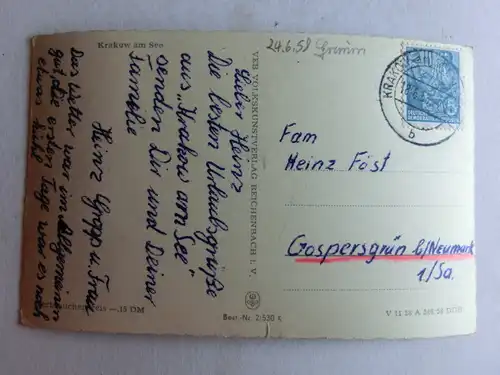 Krakow am See
24.6.58 Grimm
Lieber Heinz
Die besten Urlaubsgrüße
aus "Krakow am See"
senden Dir und Deiner
Familie
Heinz Gropp u. Frau
Das Wetter war im allgemeinen
gut, die ersten Tage war es noch
etwas kühl
VEB VOLKSKUNSTVERLAG REICHENBACH i. V.
Verbraucherpreis —.15 DM
Best.-Nr. 2/530 K
KRAKOW
b
DEUTSCHE
DEMOKRATISCHE
Fam
Heinz Föst
Gospersgrün b/Neumark
1/Sa.